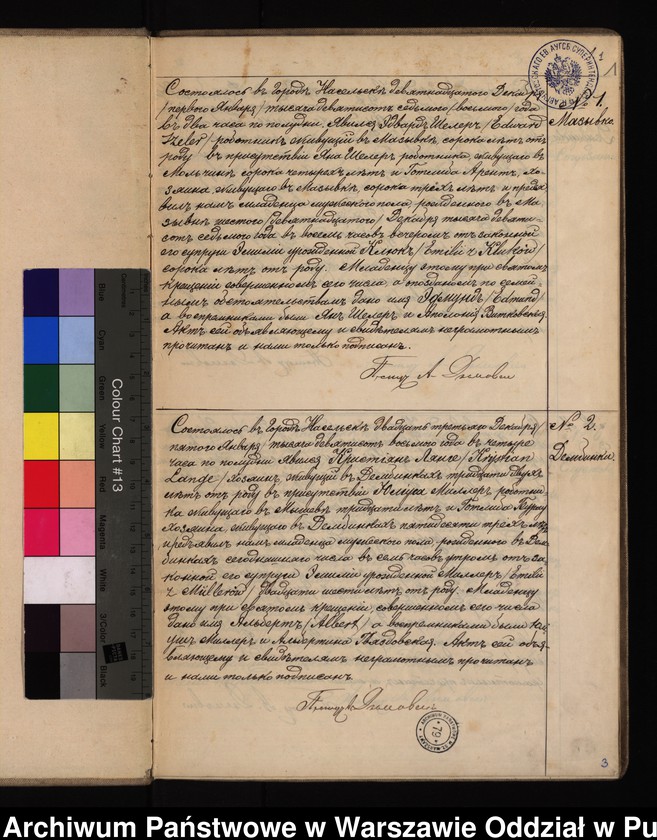 № 1.
Масывка
Состоялось въ городѣ Насельскѣ девятнадцатого Декабря
/первого Января/ тысяча девятисотъ седьмого /восьмого/ года
въ два часа по полудни. Явился Эдвардъ Шелеръ /Edward
Szeler/ работникъ живущій въ Масывкѣ сорока лѣтъ отъ
роду въ присутствіи Яна Шелеръ работника, живущаго въ
сорока четырехъ лѣтъ и Готлиба Арентъ, хо-
зяина, живущаго въ Масывкѣ, сорока трехъ лѣтъ и предъя-
вилъ намъ младенца мужескаго пола, рожденного въ Ма-
сывкѣ шестого /девятнадцатого/ Декабря тысяча девять-
сотъ седьмого года въ восемь часовъ вечеромъ отъ законной
его супруги Эмиліи урожденной Клюкъ /Emilii z Kluków/
сорока лѣтъ отъ роду. Младенцу этому при святомъ
крещеніи совершенномъ сего числа, а опозданномъ по семей-
нымъ обстоятельствамъ дано имя Эдмундъ /Edmund/
а воспріемниками были Янъ Шелеръ и Аполонія Витковская.
Актъ сей объявляющему и свидѣтелямъ неграмотнымъ
прочитанъ и нами только подписанъ.
№ 2.
Дембинки.
Состоялось въ городѣ Насельскѣ двадцать третьяго Декабря/
пятого Января/ тысяча девятисотъ восьмого года въ четыре
часа по полудни. Явился Кристіанъ Ланге /Krystian
Lange/ хозяинъ, живущій въ Дембинкахъ тридцати двухъ
лѣтъ отъ роду въ присутствіи Юліуса Миллеръ работни-
ка живущаго въ тридцати лѣтъ и Готлиба
хозяина, живущаго въ Дембинкахъ пятидесяти трехъ лѣтъ
предъявилъ намъ младенца мужескаго пола рожденного въ Дем-
бинкахъ сегодняшняго числа въ семь часовъ утромъ отъ за-
конной его супруги Эмиліи урожденной Миллеръ /Emilii
z Müllerów/ двадцати шести лѣтъ отъ роду. Младенцу
этому при святомъ крещеніи, совершенномъ сего числа
дано имя Альбертъ /Albert/, а воспріемниками были Юлі-
ушъ Миллеръ и Альбертина Гвяздовская. Актъ сей объя-
вляющему и свидѣтелямъ неграмотнымъ прочитанъ
и нами только подписанъ.
79
3
Blue
Cyan
Green
Yellow
Red
Magenta
White
3/Color
Black
Centimetres
Colour Chart #13
Archiwum Państwowe w Warszawie Oddział w Pu